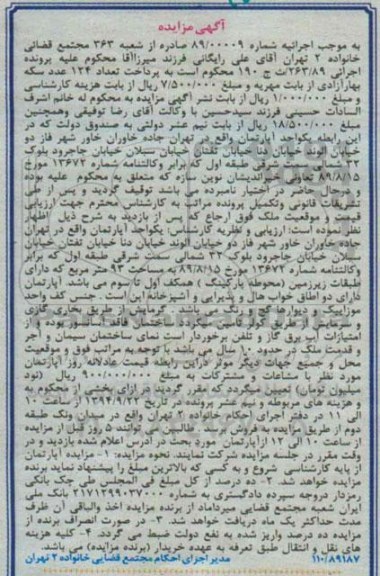 آگهی مزایده
به موجب اجرائیه شماره ۸۹/۰۰۰۰۹ صادره از شعبه ۳۶۳ مجتمع قضائی
خانواده ۲ تهران آقای علی رایگانی فرزند میرزاآقا محکوم علیه پرونده
اجرائی ۲۶۳/۸۹/ث ج ۱۹۰ محکوم است به پرداخت تعداد ۱۲۴ عدد سکه
بهارآزادی از بابت مهریه و مبلغ ۷/۵۰۰/۰۰۰ ریال از بابت هزینه کارشناسی
و مبلغ ۱/۰۰۰/۰۰۰ ریال از بابت نشر آگهی مزایده به محکوم له خانم اشرف
السادات حسینی فرزند سیدحسین با وکالت آقای رضا توفیقی وهمچنین
مبلغ ۱۸/۵۰۰/۰۰۰ ریال از بابت نیم عشر دولتی به صندوق دولت که در
این رابطه یکواحد آپارتمان واقع در تهران جاده خاوران خاور شهر فاز دو
خیابان الوند خیابان دنا خیابان تفتان خیابان سبلان خیابان جاجرود بلوک
۳۲ شمالی سمت شرقی طبقه اول که برابر وکالتنامه شماره ۱۳۶۷۲ مورخ
۸۹/۸/۱۵ تعاونی خیراندیشان نوین سازه که متعلق به محکوم علیه بوده
و درحال حاضر در اختیار نامبرده می باشد توقیف گردید و پس از طی
تشریفات قانونی وتکمیل پرونده مراتب به کارشناس محترم جهت ارزیابی
قیمت و موقعیت ملک فوق ارجاع که پس از بازدید به شرح ذیل اظهار
نظر نموده است: ارزیابی و نظریه کارشناس: یکواحد آپارتمان واقع در تهران
جاده خاوران خاور شهر فاز دو خیابان الوند خیابان دنا خیابان تفتان خیابان
سبلان خیابان جاجرود بلوک ۳۲ شمالی سمت شرقی طبقه اول که برابر
وکالتنامه شماره ۱۳۶۷۲ مورخ ۸۹/۸/۱۵ به مساحت ۹۳ متر مربع که دارای
طبقات زیرزمین (محوطه پارکینگ) همکف اول تا سوم می باشد آپارتمان
دارای دو اطاق خواب هال و پذیرایی و آشپزخانه این است. جنس کف واحد
موزاییک و دیوارها گچ و رنگ می باشد. گرمایش از طریق بخاری گازی
و سرمایش از طریق کولر تامین میگردد ساختمان فاقد آسانسور بوده و از
امتیازات آب برق گاز و تلفن برخوردار است نمای ساختمان سیمان و آجر
و قدمت ملک در حدود ۱۰ سال می باشد با توجه به مراتب فوق و موقعیت
محل و جمیع جهات دیگر موثر دراین رابطه قیمت عادلانه روز آپارتمان
مورد نظر با مشاعات و مشترکات به مبلغ ۹۰۰/۰۰۰/۰۰۰ ریال (نود
میلیون تومان) تعیین میگردد که مقرر گردید در ازای بخشی از محکوم به
و هزینه های مربوطه و نیم عشر پرونده در تاریخ ۱۳۹۴/۹/۲۲ از ساعت ۱۰
الی ۱۱ در دفتر اجرای احکام خانواده ۲ تهران واقع در میدان ونک طبقه
دوم از طریق مزایده به فروش برسد. طالبین می توانند ۵ روز قبل از مزایده
از ساعت ۱۰ الی ۱۲ ازآپارتمان مورد بحث در آدرس اعلام شده بازدید و در
وقت مقرر در جلسه مزایده شرکت نمایند. نحوه مزایده: ۱- مزایده آپارتمان
از پایه کارشناسی شروع و به کسی که بالاترین مبلغ را پیشنهاد نماید برنده
مزایده خواهد شد. ۲- ده درصد از کل مبلغ فی المجلس طی چک بانکی
رمزدار دروجه سپرده دادگستری به شماره ۲۱۷۱۲۹۹۰۳۷۰۰۰ بانک ملی
ایران شعبه مجتمع قضایی میرداماد از برنده مزایده اخذ والباقی آن ظرف
مدت حداکثر یک ماه دریافت خواهد شد. ۳- در صورت انصراف برنده از
مزایده ده درصد واریز شده به نفع دولت ضبط می گردد. ۴- کلیه هزینه
های نقل و انتقال طبق تعرفه به عهده خریدار (برنده مزایده) می باشد.
۱۱۰/۸۹۱۸۷ مدیر اجرای احکام مجتمع قضایی خانواده ۲ تهران